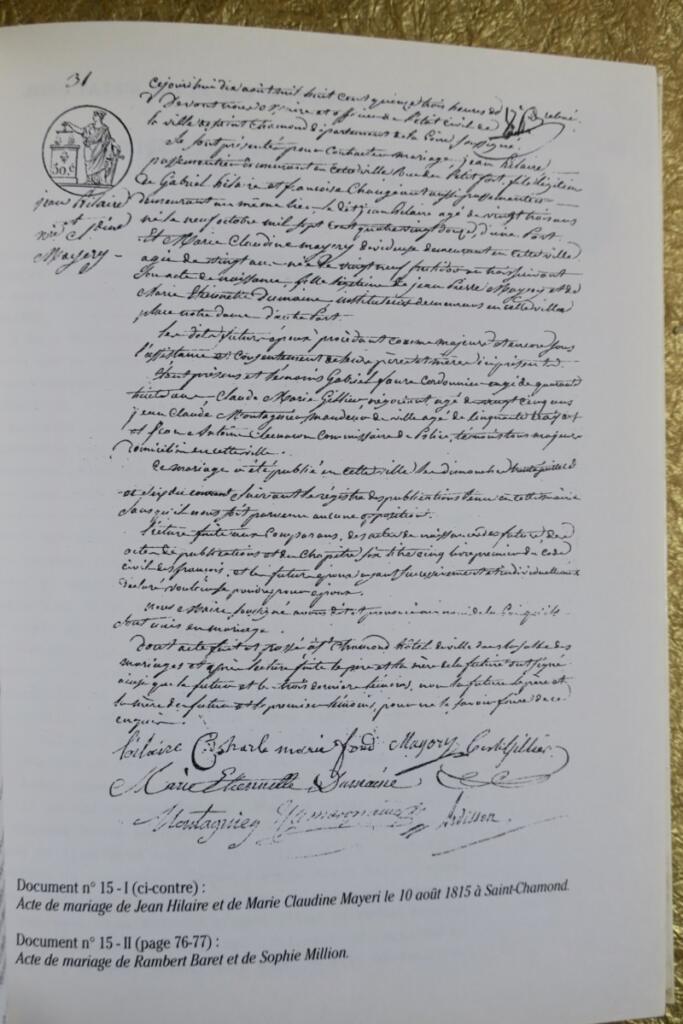 31
cejourd'hui dix août mil huit cent quinze trois heures de
Devant nous Maire et officier de l'état civil de
la ville de Saint Chamond département de la Loire soussigné
Se sont présentés pour contracter mariage, jean hilaire
passementier demeurant en cette ville Rue du Petit fort, fils légitime
de Gabriel hilaire et francoise aussi passementiers
demeurant au même lieu, le dit jean hilaire agé de vingt trois ans
né le neuf octobre mil sept cent quatre vingt douze, d'une Part
Et Marie Claudine mayery devideuse demeurant en cette ville
agée de vingt ans née le vingt neuf fructidor an trois suivant
Son acte de naissance, fille légitime de jean Pierre Mayery et de
Marie Etiennette Dumaine, instituteurs demeurans en cette ville
place notre dame d'autre Part
50.c
jean hilaire
et
Mayery
Les dits futurs époux procédant comme majeurs et encore sous
l'assistance et Consentement de leurs père et mère ici présents
Etant présens et témoins Gabriel faure Cordonnier agé de quarante
huit ans Claude Marie Gillier négociant agé de vingt cinq ans
jean Claude Montagnier mandeur de ville agé de cinquante
et jean Antoine Commissaire de Police, témoins tous majeurs
domiciliés en cette ville.
Ce mariage a été publié en cette ville les dimanches trente juillet
et six du courant suivant le régistre des publications tenu en cette mairie
sans qu'il nous soit parvenu aucune opposition.
Lecture faite aux Comparans, des actes de naissances des futurs, des
actes de publications et du Chapitre six titre cinq livre premier du Code
civil des français, et les futurs époux ayant successivement et individuellement
déclaré vouloir se prendre pour époux.
nous Maire soussigné avons dit et prononcé au nom de la Loi qu'ils
sont unis en mariage.
Dont acte fait et passé à St Chamond Hôtel de ville dans la salle des
mariages et après lecture faite le père et la mère de la future ont signé
ainsi que le futur et les trois derniers témoins, non la future le père et
la mère du futur et le premier témoin, pour ne le savoir faire de ce
enquis.
hilaire Mayery Gillier
Marie Etiennette Dumaine
Montagnier Ardisson
Document n° 15 - I (ci-contre) :
Acte de mariage de Jean Hilaire et de Marie Claudine Mayeri le 10 août 1815 à Saint-Chamond.
Document n° 15 - II (page 76-77) :
Acte de mariage de Rambert Baret et de Sophie Million.